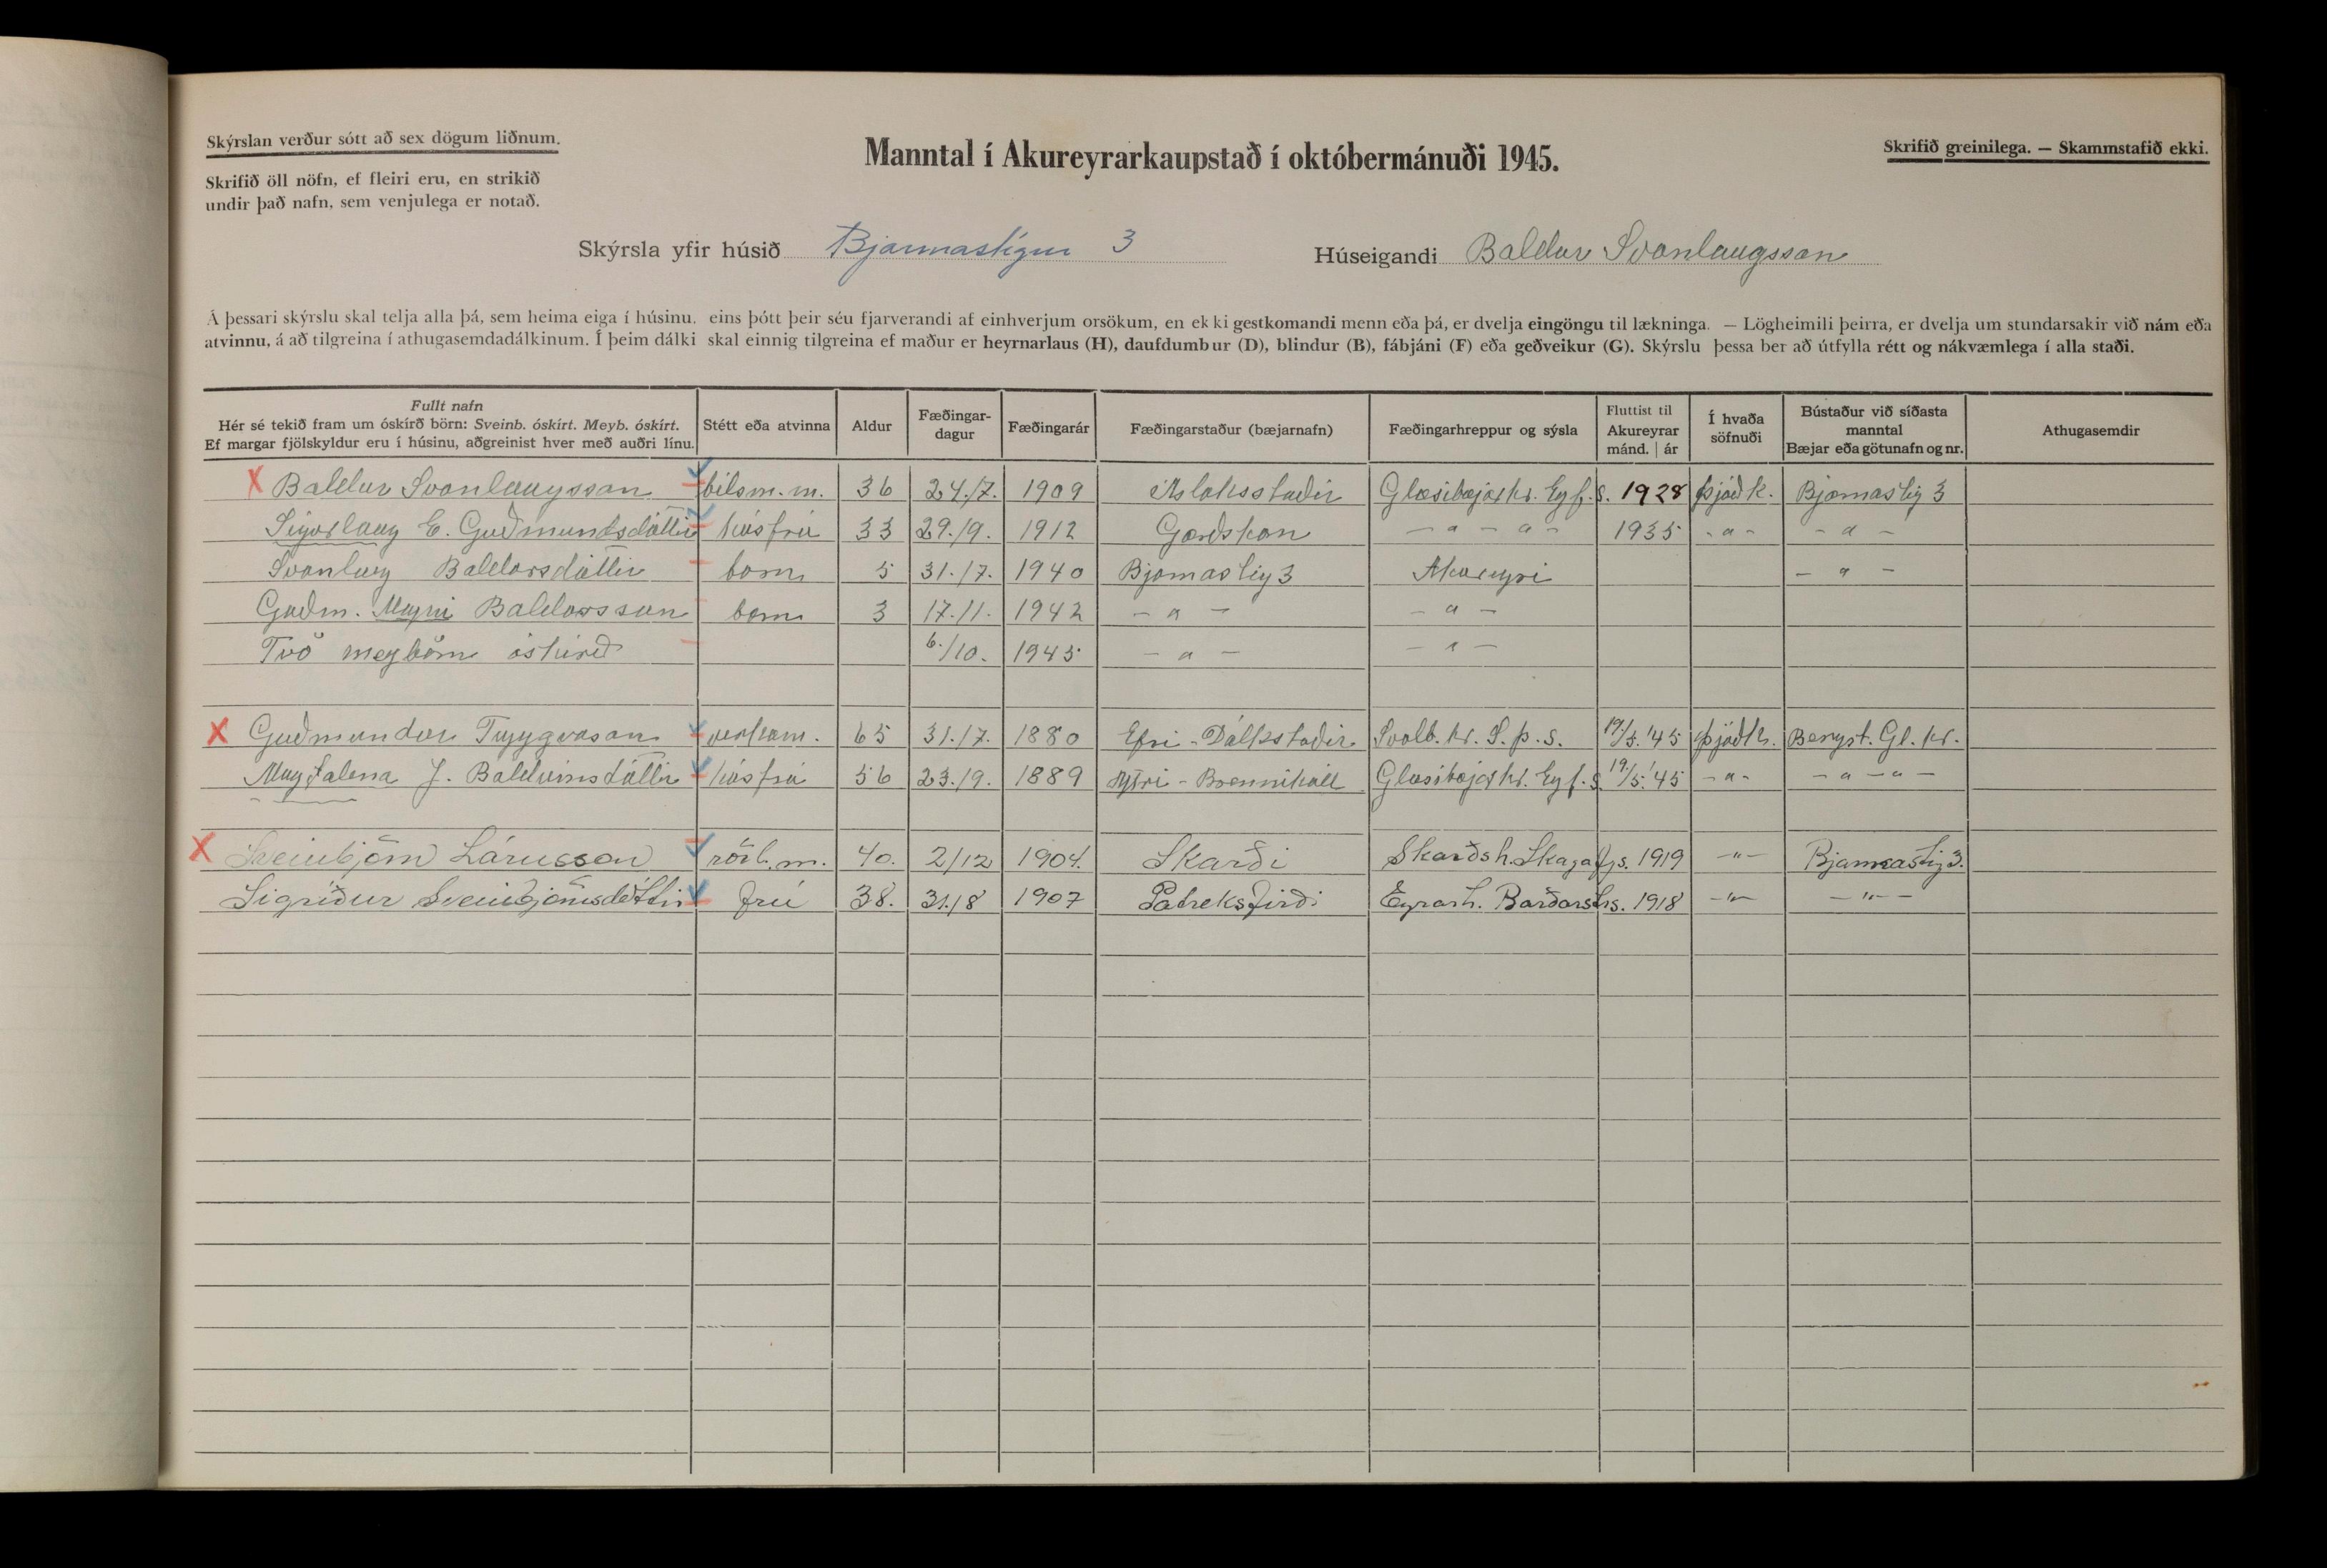 Skýrslan verður sótt að sex dögum liðnum.
Skrifið öll nöfn, ef fleiri eru, en strikið
undir það nafn, sem venjulega er notað.
Manntal í Akureyrarkaupstað í októbermánuði 1945.
Skrifið greinilega. — Skammstafið ekki.
Skýrsla yfir húsið Bjarmastígur 3 Húseigandi Baldur Svanlaugsson
Á þessari skýrslu skal telja alla þá, sem heima eiga í húsinu. eins þótt þeir séu fjarverandi af einhverjum orsökum, en ekki gestkomandi menn eða þá, er dvelja eingöngu til lækninga. — Lögheimili þeirra, er dvelja um stundarsakir við nám eða
atvinnu, á að tilgreina í athugasemdadálkinum. Í þeim dálki skal einnig tilgreina ef maður er heyrnarlaus (H), daufdumbur (D), blindur (B), fábjáni (F) eða geðveikur (G). Skýrslu þessa ber að útfylla rétt og nákvæmlega í alla staði.
Fullt nafn
Hér sé tekið fram um óskírð börn: Sveinb. óskírt. Meyb. óskírt.
Ef margar fjölskyldur eru í húsinu, aðgreinist hver með auðri línu.
Stétt eða atvinna
Aldur
Fæðingar-
dagur
Fæðingarár
Fæðingarstaður (bæjarnafn)
Fæðingarhreppur og sýsla
Fluttist til
Akureyrar
mánd. | ár
Í hvaða
söfnuði
Bústaður við síðasta
manntal
Bæjar eða götunafn og nr.
Athugasemdir
X Baldur Svanlaugsson bílsm.m. 36 24./7. 1909 Aslaksstaðir Glæsibæjarhr. Eyf.s. 1928 þjóðk. Bjarmastíg 3
Sigurlaug E. Guðmundsdóttir húsfrú 33 29./9. 1912 Garðshorn — " — " — 1935 - " - - " -
Svanlaug Baldursdóttir barn 5 31./7. 1940 Bjarmastíg 3 Akureyri - " -
Guðm. Magni Baldursson barn 3 17.11. 1942 - " - - " -
Tvö meybörn óskírð 6./10. 1945 - " - - " -
X Guðmundur Tryggvason verkam. 65 31./7. 1880 Efri-Dálksstaðir Svalb.hr. S.þ.s. 19./5.'45 þjóðk. Gl.hr.
Magdalena J. Baldvinsdóttir húsfrú 56 23./9. 1889 Ytri-Brennihóll Glæsibæjarhr. Eyf.s. 19./5.'45 - " - - " - " -
X Sveinbjörn Lárusson rörl.m. 40. 2/12 1904. Skarði Skarðsh. Skagafjs. 1919 - " - Bjarmastíg 3.
Sigríður Sveinbjörnsdóttir frú 38. 31.18 1907 Patreksfirði Eyrarh. Barðarstrs. 1918 - " - - " -